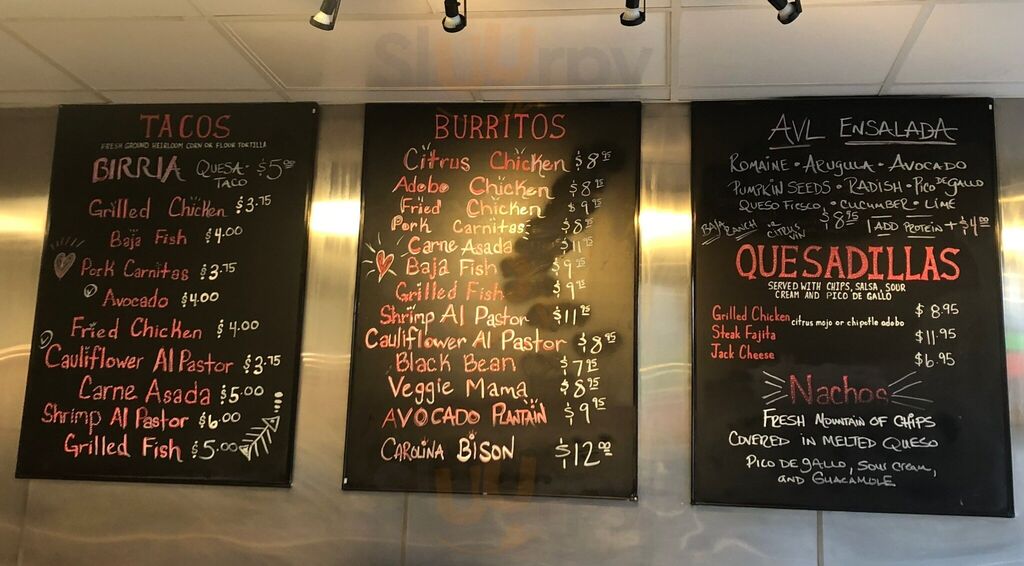 sluurpy
TACOS
FRESH GROUND HEIRLOOM CORN OR FLOUR TORTILLA
BIRRIA QUESA-TACO $5.00
Grilled Chicken $3.75
Baja Fish $4.00
Pork Carnitas $3.75
Avocado $4.00
Fried Chicken $4.00
Cauliflower Al Pastor $3.75
Carne Asada $5.00
Shrimp Al Pastor $6.00
Grilled Fish $5.00
BURRITOS
Citrus Chicken $8.95
Adobo Chicken $8.95
Fried Chicken $9.95
Pork Carnitas $8.95
Carne Asada $11.95
Baja Fish $9.95
Grilled Fish $9.95
Shrimp Al Pastor $11.95
Cauliflower Al Pastor $8.95
Black Bean $7.95
Veggie Mama $8.95
AVOCADO PLANTAIN $9.95
CAROLINA BISON $12.00
AVL ENSALADA
ROMAINE • ARUGULA • AVOCADO
PUMPKIN SEEDS • RADISH • PICO DE GALLO
QUESO FRESCO • CUCUMBER • LIME
$8.95
BAJA RANCH CITRUS VIN ADD PROTEIN + $4.00
QUESADILLAS
SERVED WITH CHIPS, SALSA, SOUR
CREAM AND PICO DE GALLO
Grilled Chicken citrus mojo or chipotle adobo $8.95
Steak Fajita $11.95
Jack Cheese $6.95
Nachos
FRESH MOUNTAIN OF CHIPS
COVERED IN MELTED QUESO
PICO DE GALLO, SOUR CREAM,
AND GUACAMOLE